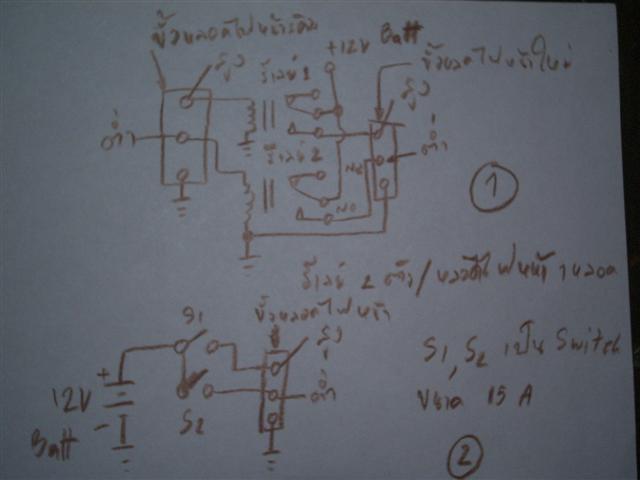 ขั้วหลอดไฟหน้าเดิม
Batt
+12V
สูง
รีเลย์ 1
ขั้วหลอดไฟหน้าใหม่
สูง
ต่ำ
ต่ำ
รีเลย์ 2
NO
1
รีเลย์ 2 ตัว/หลอดไฟหน้า 1 หลอด
S1
ขั้วหลอดไฟหน้า
สูง
+
12V
Batt
-
S2
ต่ำ
S1, S2 เป็น Switch
ขนาด 15 A
2